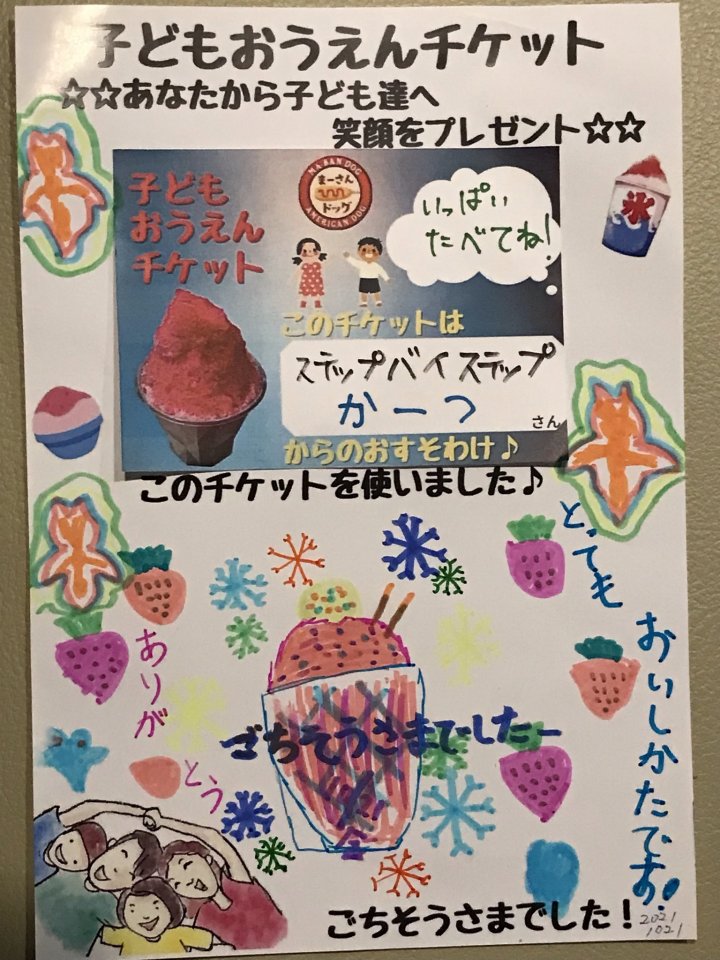 子どもおうえんチケット
☆☆あなたから子ども達へ
笑顔をプレゼント☆☆
子ども
おうえん
チケット
MA SAN DOG
まーさん
ドッグ
AMERICAN DOG
いっぱい
たべてね!
氷
このチケットは
ステップバイステップ
かーつ
さん
からのおすそわけ♪
このチケットを使いました♪
とっても
おいしかたです!
ありが
とう
ごちそうさまでしたー
ごちそうさまでした!
2021
1021